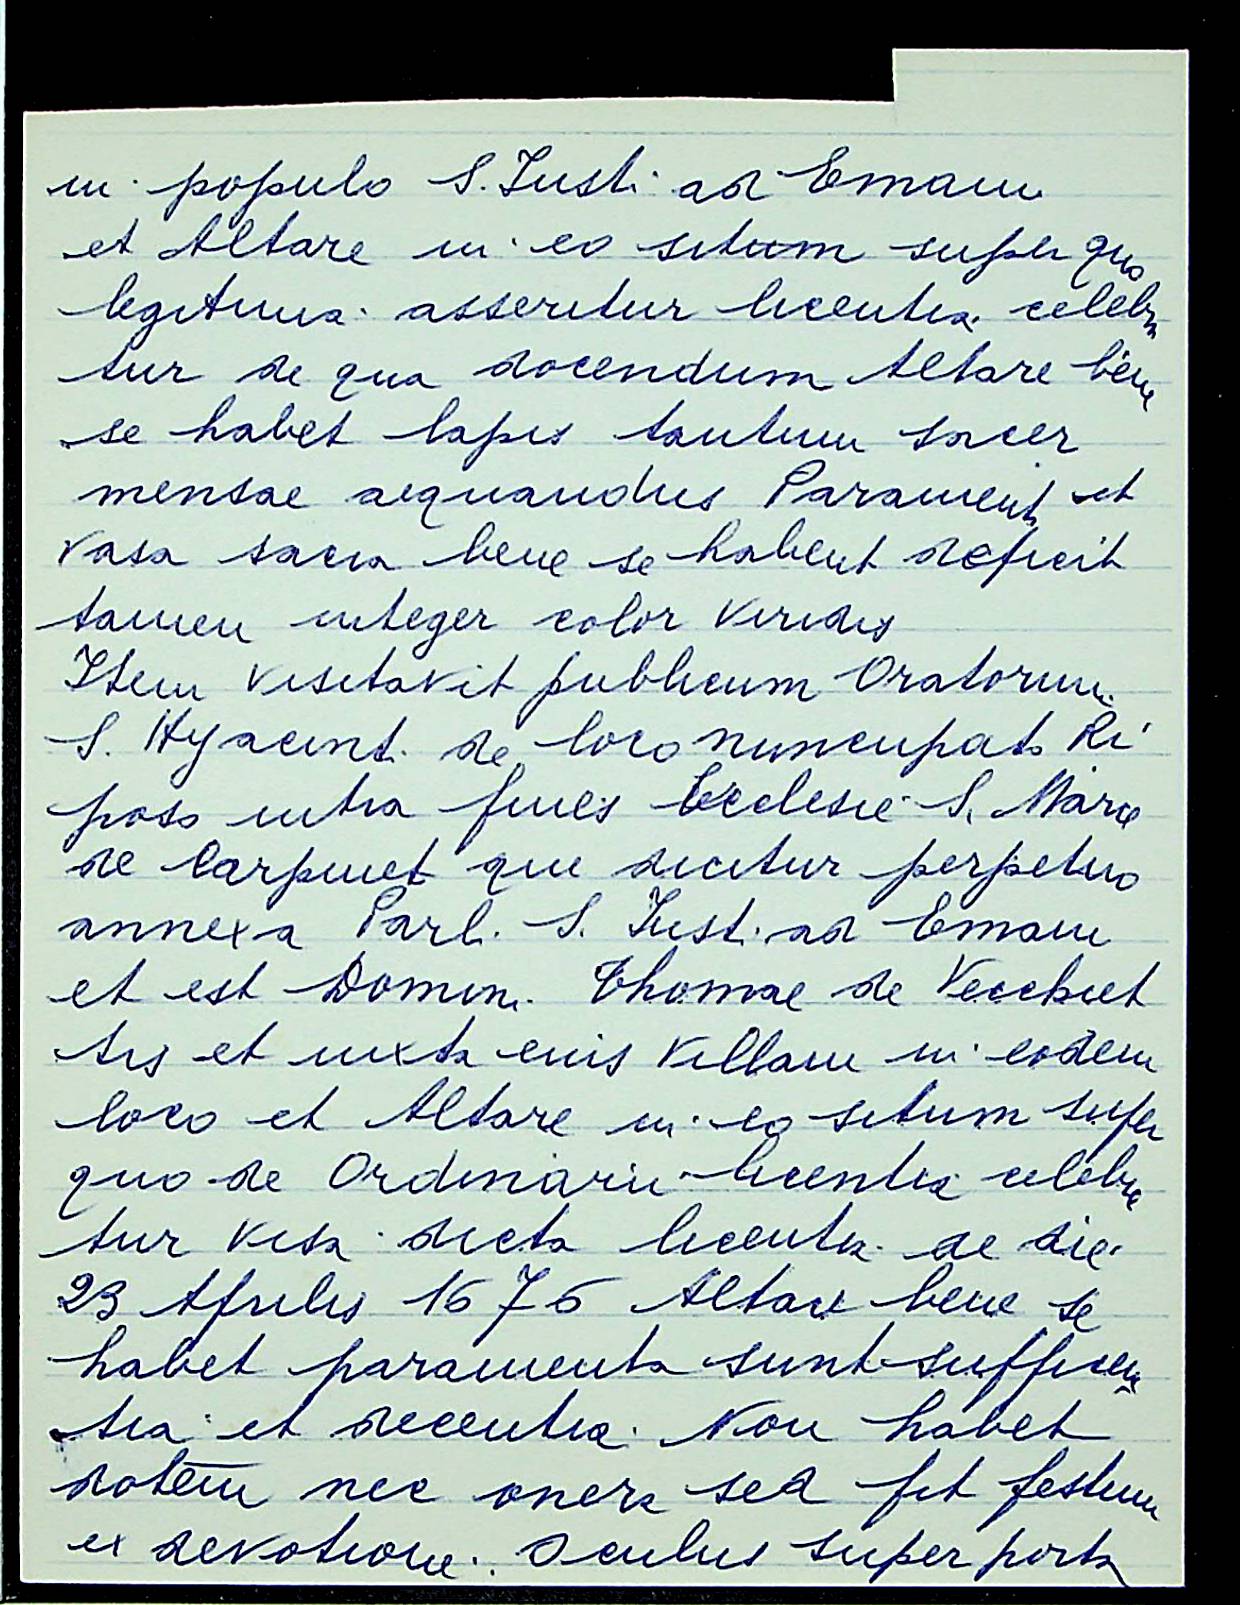 in populo S. Justi ad Emam
et Altare in eo situm super quo
legitima asseritur licentia celebra
tur de qua docendum Altare bene
se habet lapis tantum sacer
mensae aequandus Paramenta et
vasa sacra bene se habent deficit
tamen integer color viridis
Item visitavit publicum Oratorium
S. Hyacint. de loco nuncupato Ri
poso intra fines Ecclesie S. Marie
de Carpinet que dicitur perpetuo
annexa Paril. S. Just. ad Emam
et est Domin. Thomae de Vecchiet
tis et iuxta eius Villam in eodem
loco et Altare in eo situm super
quo de Ordinarii licentia celebra
tur visa dicta licentia de die
23 Aprilis 1676 Altare bene se
habet paramenta sunt sufficien
tia et decentia. Non habet
dotem nec onera sed fit festum
ex devotione. Oculus super porta